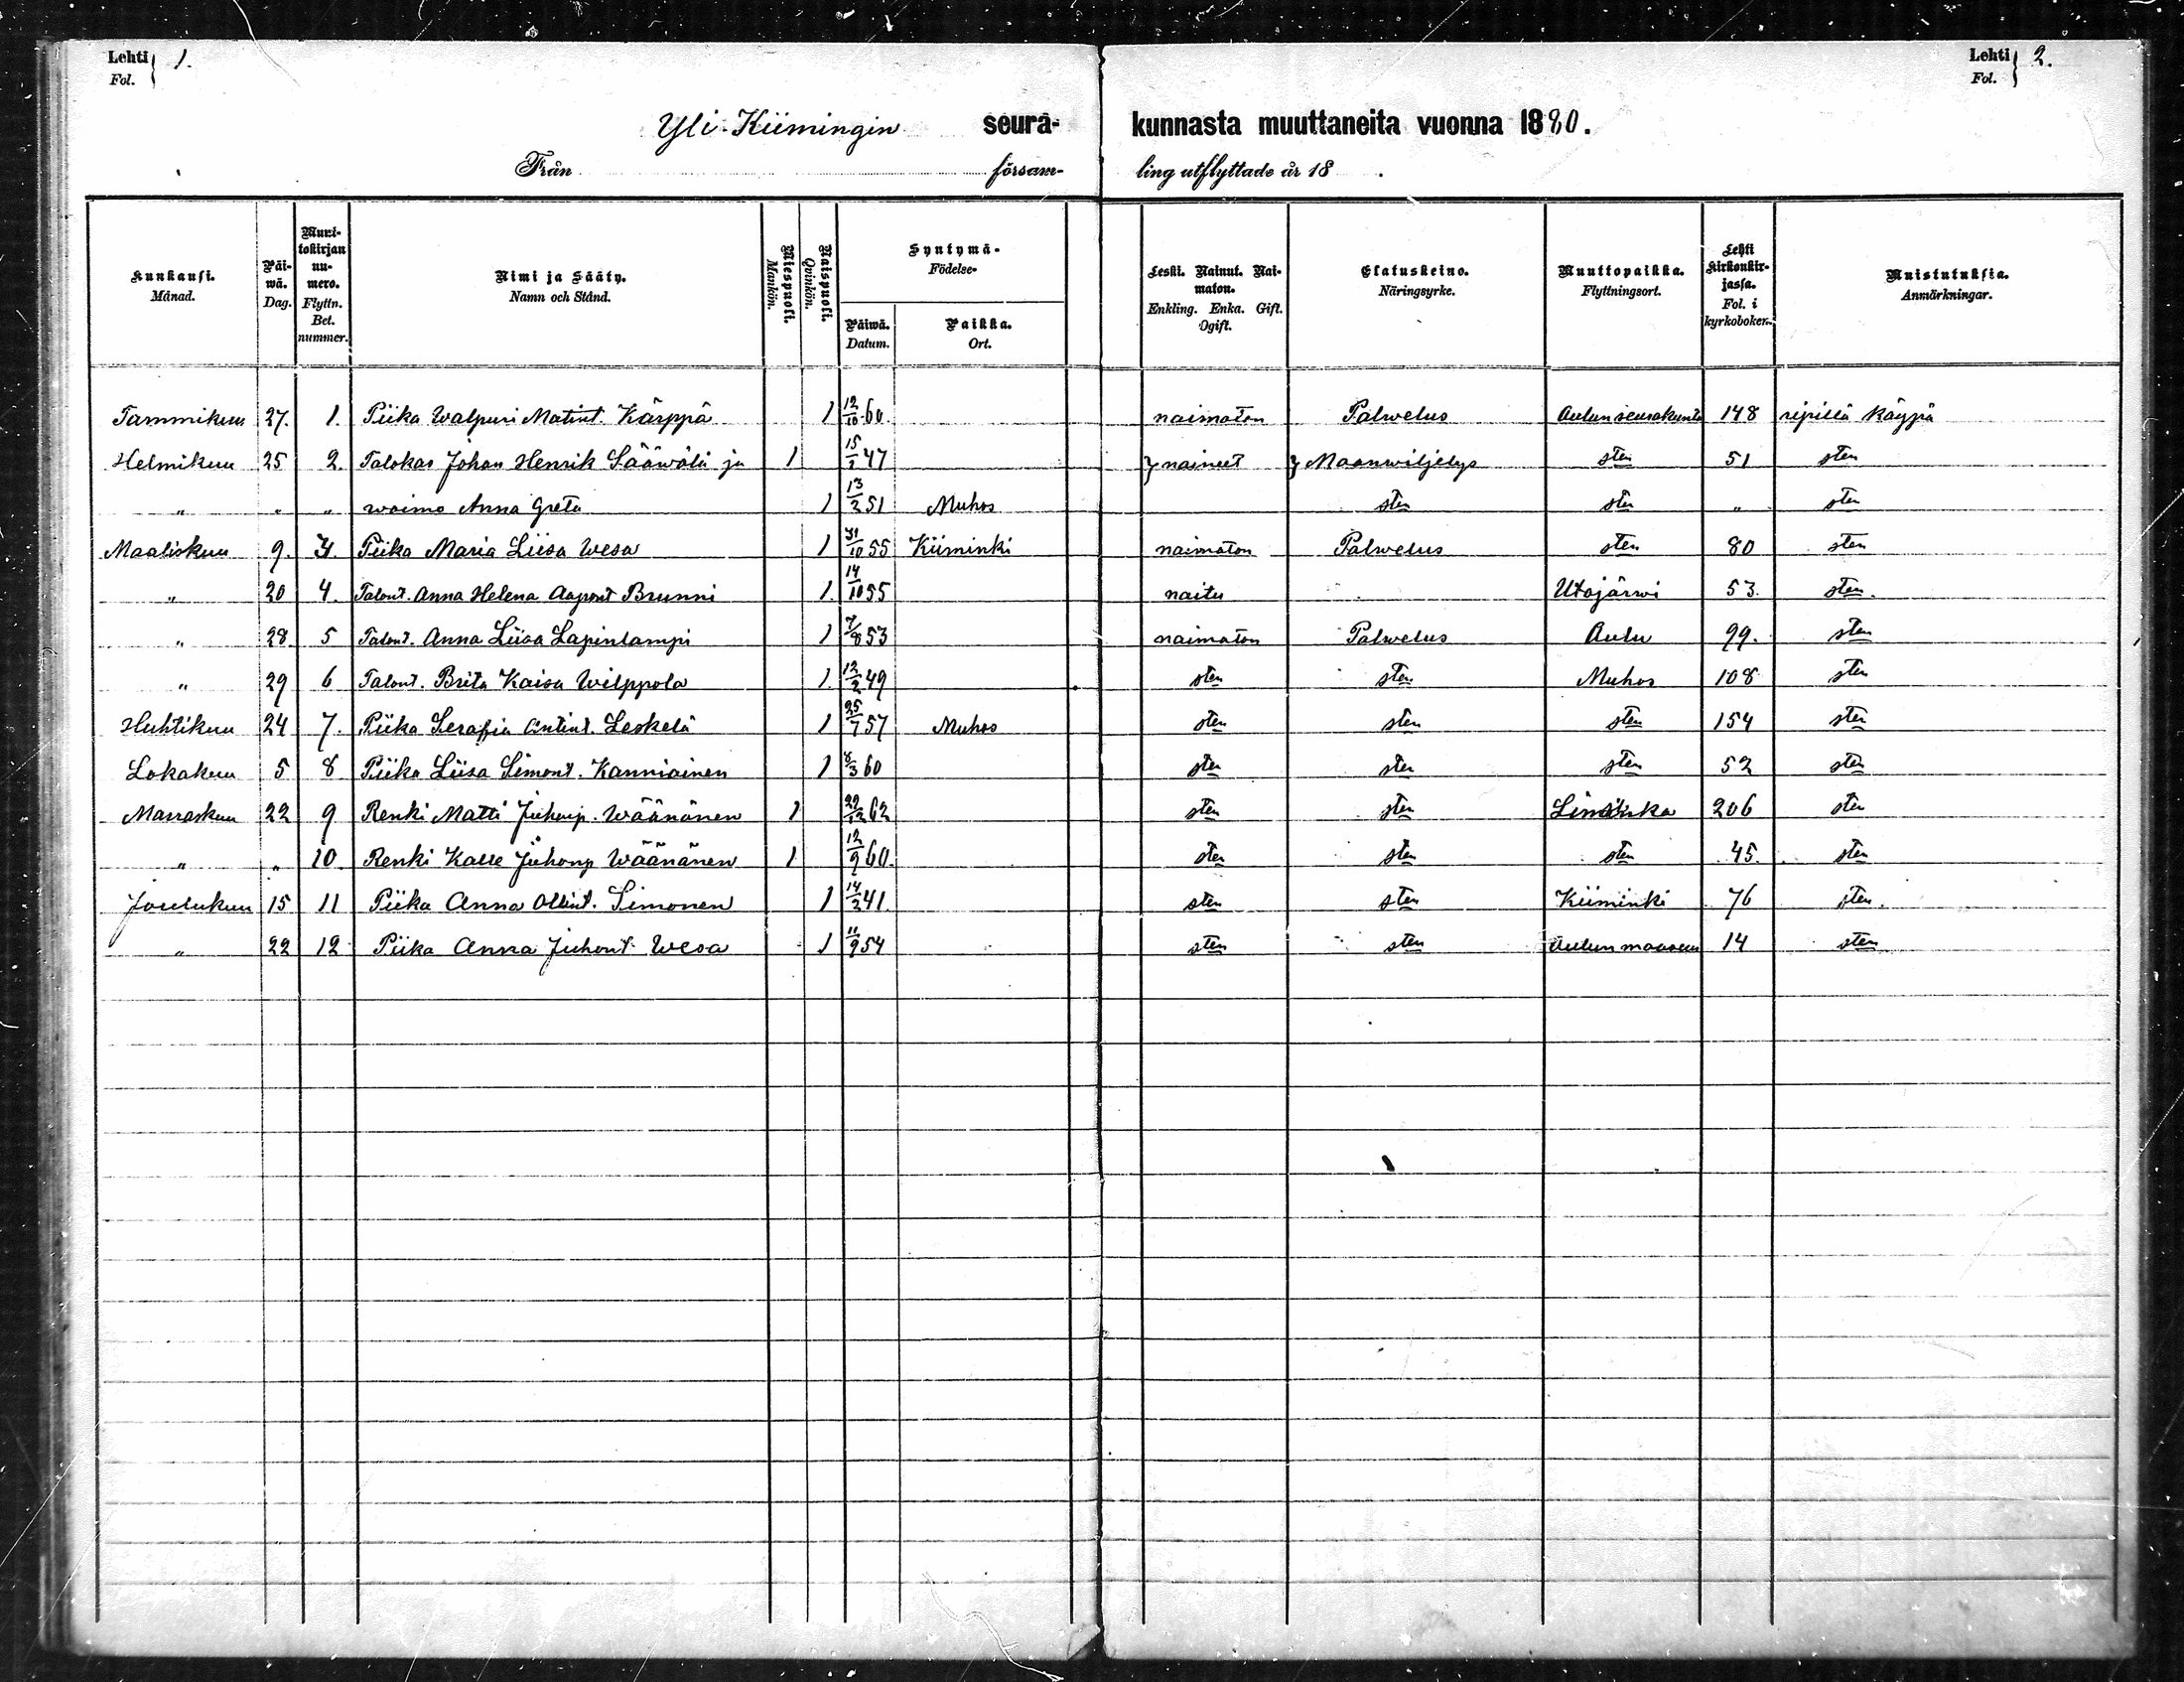 Lehti 1.
Fol.
Lehti 2.
Fol.
Yli-Kiimingin seura- kunnasta muuttaneita vuonna 1880.
Från församling utflyttade år 18 .
Kuukausi. Månad.
Päiwä. Dag.
Muuttokirjan numero. Flyttn. Bet. nummer.
Nimi ja Sääty. Namn och Stånd.
Miespuoli. Mankön.
Naispuoli. Qvinkön.
Syntymä- Födelse-
Päiwä. Datum.
Paikka. Ort.
Leski. Nainut. Naimaton. Enkling. Enka. Gift. Ogift.
Elatuskeino. Näringsyrke.
Muuttopaikka. Flyttningsort.
Lehti kirkonkirjassa. Fol. i kyrkoboken.
Muistutuksia. Anmärkningar.
Tammikuu 27. 1. Piika Walpuri Matint. Kärppä 1 12/10 60. naimaton Palwelus Oulun seurakunta 148 ripillä käypä
Helmikuu 25 2. Talokas Johan Henrik Sääwälä ja 1 15/2 47 } naineet } Maanwiljelys sten 51 sten
" " " waimo Anna Greta 1 13/2 51 Muhos sten sten " sten
Maaliskuu 9. 3. Piika Maria Liisa Wesa 1 31/10 55 Kiiminki naimaton Palwelus sten 80 sten
" 20 4. Talont. Anna Helena Aapont Brunni 1. 14/10 55 naitu Utajärwi 53. sten.
" 28 5 Talont. Anna Liisa Lapinlampi 1 7/8 53 naimaton Palwelus Oulu 99. sten
" 29 6 Talont. Brita Kaisa Wilppola 1. 12/2 49 sten sten Muhos 108 sten
Huhtikuu 24 7. Piika Serafia Antint. Leskelä 1 25/7 57 Muhos sten sten sten 154 sten
Lokakuu 5 8 Piika Liisa Simont. Kanniainen 1 8/3 60 sten sten sten 52 sten
Marraskuu 22 9 Renki Matti Juhonp. Wäänänen 1 29/12 62 sten sten Liminka 206 sten
" " 10 Renki Kalle Juhonp Wäänänen 1 12/9 60. sten sten sten 45. sten
Joulukuu 15 11 Piika Anna Ollint. Simonen 1 14/2 41. sten sten Kiiminki 76 sten.
" 22 12 Piika Anna Juhont Wesa 1 11/9 54 sten sten Oulun maaseu 14 sten